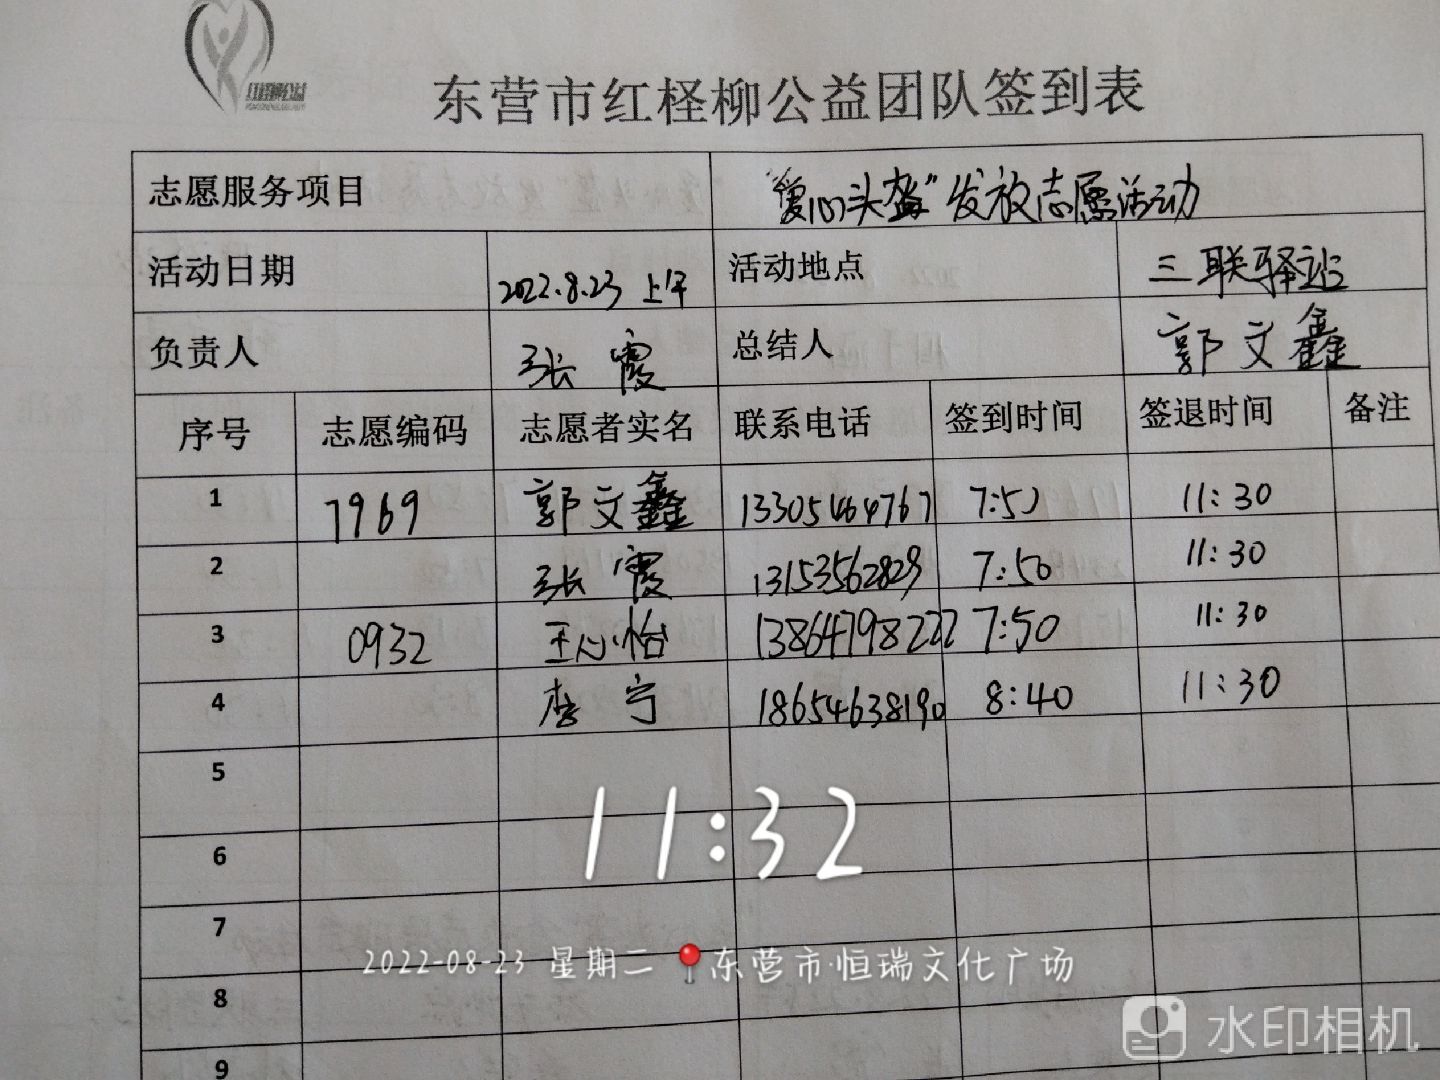 东营市红柽柳公益团队签到表
志愿服务项目 "爱心头盔"发放志愿活动
活动日期 2022.8.23 上午 活动地点 三联驿站
负责人 张霞 总结人 郭文鑫
序号 志愿编码 志愿者实名 联系电话 签到时间 签退时间 备注
1 7969 郭文鑫 13305464767 7:50 11:30
2 张霞 13153562829 7:50 11:30
3 0932 王心怡 13864798222 7:50 11:30
4 李宁 18654638190 8:40 11:30
5
11:32
6
7
2022-08-23 星期二 东营市·恒瑞文化广场
8
水印相机
9